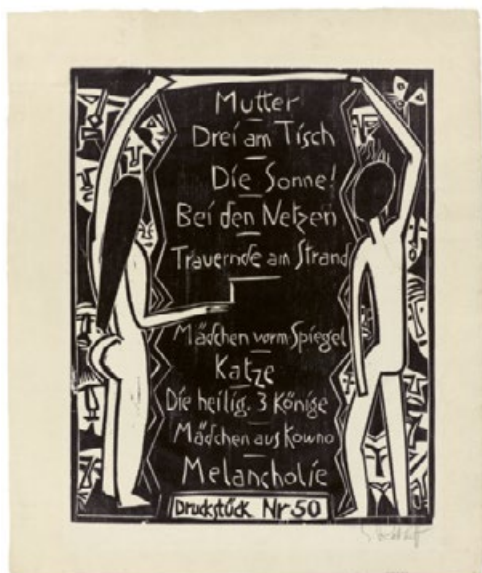 Mutter
Drei am Tisch
Die Sonne!
Bei den Netzen
Trauernde am Strand
Mädchen vorm Spiegel
Katze
Die heilig. 3 Könige
Mädchen aus Kowno
Melancholie
Druckstück Nr 50